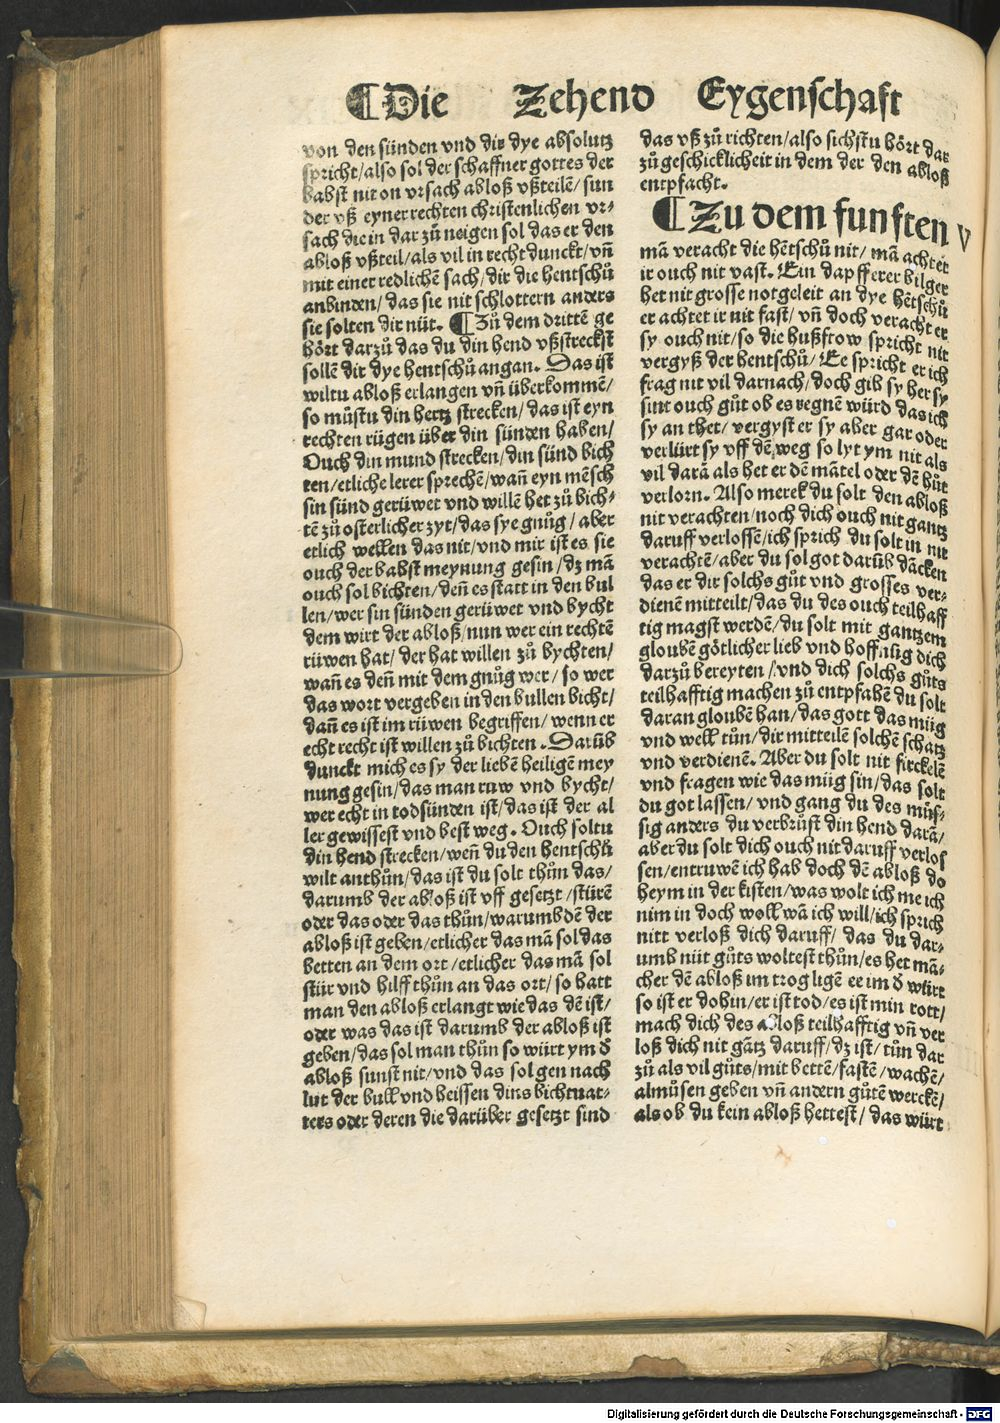 ¶Die Zehend Eygenschaft
von den sünden vnd dir dye absolutz
spricht/also sol der schaffner gottes der
babst nit on vrsach abloß vßteilē/ sun
der vß eyner rechten christenlichen vr⸗
sach die in dar zů neigen sol das er den
abloß vßteil/als vil in recht dunckt/vñ
mit einer redlichē sach/dir die hentschů
anbinden/das sie nit schlottern anders
sie solten dir nüt. ¶Zů dem drittē ge
hört darzů das du din hend vßstreckst
sollē dir dye hentschů angan. Das ist
wiltu abloß erlangen vñ überkommē/
so můstu din hertz strecken/das ist eyn
rechten rügen über din sünden haben/
Ouch din mund strecken/din sünd bich
ten/etliche lerer sprechē/wañ eyn mēsch
sin sünd gerüwet vnd willē het zů bich⸗
tē zů osterlicher zyt/das sye gnůg/ aber
etlich wellen das nit/vnd mir ist es sie
ouch der babst meynung gesin/dz mā
ouch sol bichten/deñ es statt in den bul
len/wer sin sünden gerüwet vnd bycht
dem wirt der abloß/nun wer ein rechtē
rüwen hat/der hat willen zů bychten/
wañ es deñ mit dem gnůg wer/ so wer
das wort vergeben in den bullen bicht/
dañ es ist im rüwen begriffen/wenn er
echt recht ist willen zů bichten. Darüb
dunckt mich es sy der liebē heiligē mey
nung gesin/das man ruw vnd bycht/
wer echt in todsünden ist/das ist der al
ler gewissest vnd best weg. Ouch soltu
din hend strecken/weñ du den hentschů
wilt anthůn/das ist du solt thůn das/
darumb der abloß ist vff gesetzt/stürē
oder das oder das thůn/warumb dē der
abloß ist geben/etlicher das mā sol das
betten an dem ort/etlicher das mā sol
stür vnd hilff thůn an das ort/so hatt
man den abloß erlangt wie das dē ist/
oder was das ist darumb der abloß ist
geben/das sol man thůn so würt ym ď
abloß sunst nit/vnd das sol gen nach
lut der bull vnd heissen dins bichtuat⸗
ters oder deren die darüber gesetzt sind
das vß zů richten/also sichstu hört dar
zů geschicklicheit in dem der den abloß
entpfacht.
¶Zu dem funften V
mā veracht die hētschů nit/ mā achtet
ir ouch nit vast. Ein dapfferer bilger
het nit grosse not geleit an dye hētschů
er achtet ir nit fast/ vñ doch veracht er
sy ouch nit/so die hußfrow spricht nit
vergyß der hentschů/ Ee spricht er ich
frag nit vil darnach/doch gib sy her sy
sint ouch gůt ob es regnē würd das ich
sy an thet/ vergyst er sy aber gar oder
verlürt sy vff dē weg so lyt ym nit als
vil darā als het er dē mātel oder dē hůt
verlorn. Also merck du solt den abloß
nit verachten/noch dich ouch nit gantz
daruff verlossē/ich sprich du solt in nit
verachtē/aber du sol got darüb dācken
das er dir solchs gůt vnd grosses ver⸗
dienē mitteilt/das du des ouch teilhaff
tig magst werdē/du solt mit gantzem
gloubē götlicher lieb vnd hoffnūg dich
darzů bereyten/vnd dich solchs gůts
teilhafftig machen zů entpfabē du solt
daran gloubē han/das gott das müg
vnd well tůn/dir mitteilē solchē schatz
vnd verdienē. Aber du solt nit firckelē
vnd fragen wie das müg sin/das solt
du got lassen/ vnd gang du des můs⸗
sig anders du verbrůst din hend darā/
aber du solt dich ouch nit daruff verlos
sen/entruwē ich hab doch dē abloß do
heym in der kisten/was wolt ich me ich
nim in doch woll wā ich will/ich sprich
nitt verloß dich daruff/ das du dar⸗
umb nüt gůts woltest thůn/es het mā⸗
cher dē abloß im trog ligē ee im ď würt
so ist er dohin/er ist tod/es ist min rott/
mach dich des abloß teilhafftig vñ ver
loß dich nit gātz daruff/dz ist/ tůn dar
zů als vil gůts/mit bettē/fastē/wachē/
almůsen geben vñ andern gůtē werckē/
als ob du kein abloß hettest/ das würt
Digitalisierung gefördert durch die Deutsche Forschungsgemeinschaft - DFG